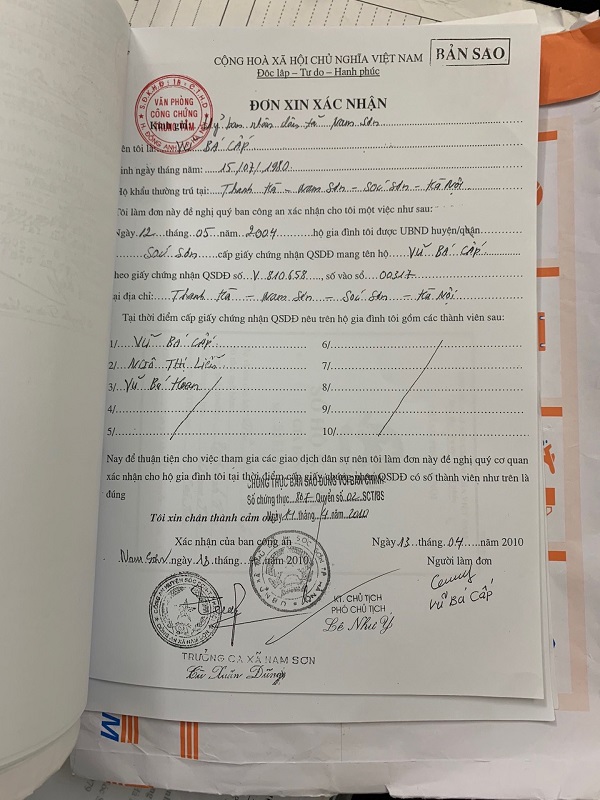 CỘNG HOÀ XÃ HỘI CHỦ NGHĨA VIỆT NAM
BẢN SAO
Độc lập – Tự do – Hạnh phúc
ĐƠN XIN XÁC NHẬN
VĂN PHÒNG
CÔNG CHỨNG
TRUNG TÂM
Kính gửi: Uỷ ban nhân dân xã Nam Sơn
Tên tôi là: VŨ BÁ CẤP
Sinh ngày tháng năm: 15/07/1980
Hộ khẩu thường trú tại: Thanh Hà – Nam Sơn – Sóc Sơn – Hà Nội
Tôi làm đơn này đề nghị quý ban công an xác nhận cho tôi một việc như sau:
Ngày 12 tháng 05 năm 2004 hộ gia đình tôi được UBND huyện/quận
Sóc Sơn cấp giấy chứng nhận QSDĐ mang tên hộ VŨ BÁ CẤP
theo giấy chứng nhận QSDĐ số V 810658, số vào sổ 00317
tại địa chỉ: Thanh Hà – Nam Sơn – Sóc Sơn – Hà Nội
Tại thời điểm cấp giấy chứng nhận QSDĐ nêu trên hộ gia đình tôi gồm các thành viên sau:
1/ VŨ BÁ CẤP 6/
2/ NGÔ THỊ Liễu 7/
3/ VŨ Bá Hoan 8/
4/ 9/
5/ 10/
Nay để thuận tiện cho việc tham gia các giao dịch dân sự nên tôi làm đơn này đề nghị quý cơ quan
xác nhận cho hộ gia đình tôi tại thời điểm cấp giấy chứng nhận QSDĐ có số thành viên như trên là
đúng
CHỨNG THỰC BẢN SAO ĐÚNG VỚI BẢN CHÍNH
Số chứng thực 807 Quyển số 02 SCT/BS
Ngày tháng 4 năm 2010
Tôi xin chân thành cảm ơn
Xác nhận của ban công an
Ngày 13 tháng 04 năm 2010
Nam Sơn, ngày 13 tháng năm 2010
Người làm đơn
Vũ Bá Cấp
KT. CHỦ TỊCH
PHÓ CHỦ TỊCH
Lê Như Ý
TRƯỞNG CA XÃ NAM SƠN
Xuân Dũng